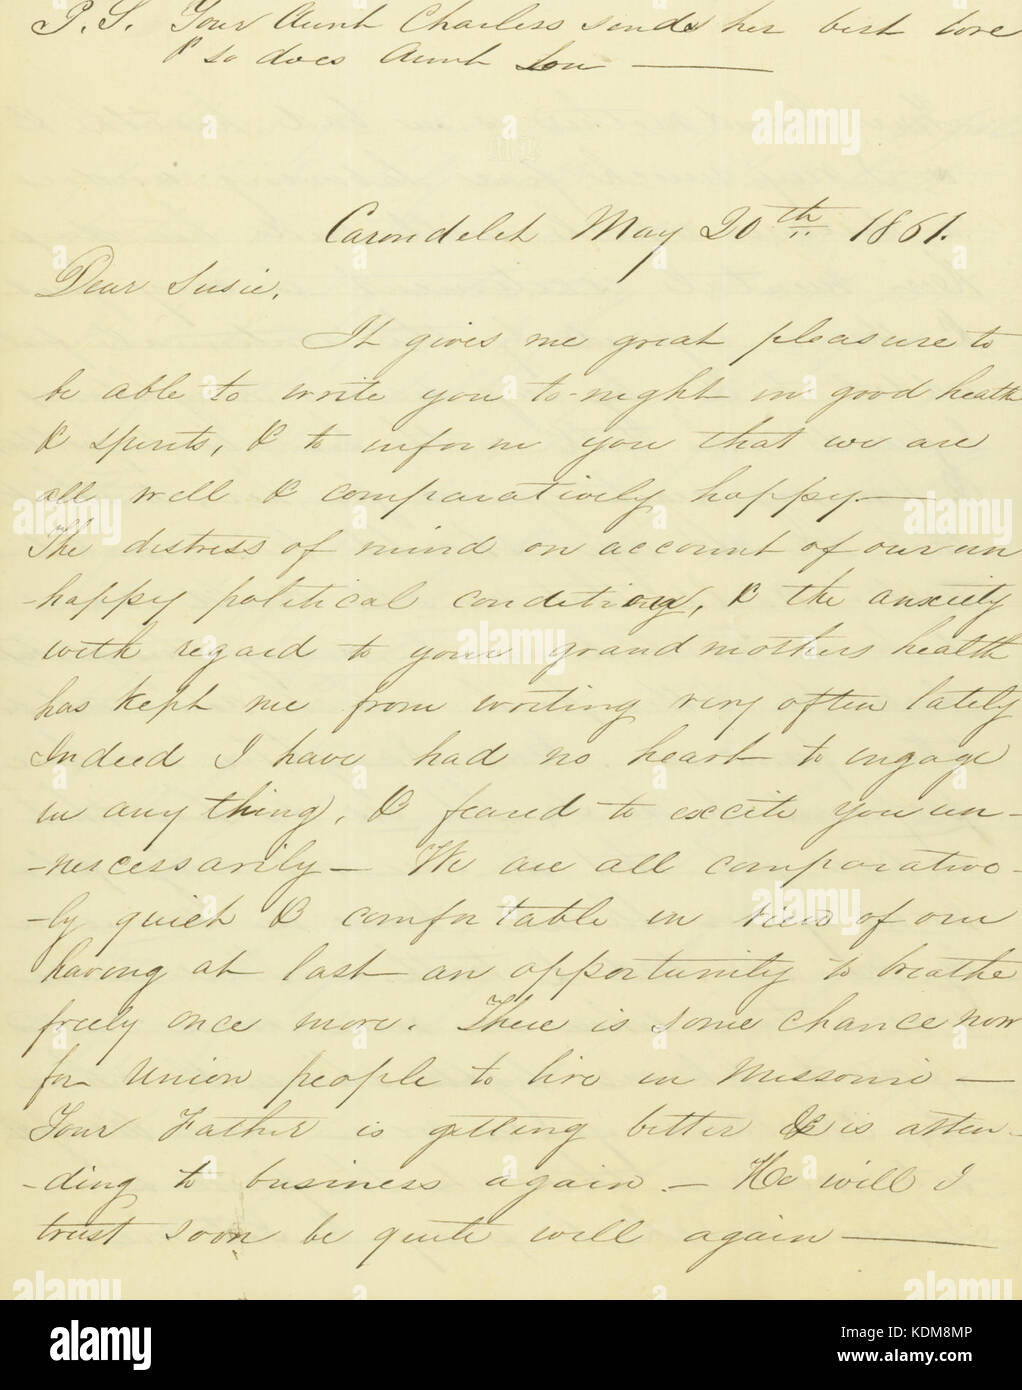 P.S. Your Aunt Charless sends her best love
& so does Aunt Lou —
Carondelet May 20th 1861.
Dear Susie,
It gives me great pleasure to
be able to write you to-night in good heath
& spirits, & to inform you that we are
all well & comparatively happy—
The distress of mind on account of our un
-happy political condition, & the anxiety
with regard to your grandmothers health
has kept me from writing very often lately
Indeed I have had no heart to engage
in any thing, & feared to excite you un-
-nescessarily— We are all comparative-
-ly quiet & comfortable in view of our
having at last an opportunity to breathe
freely once more. There is some chance now
for Union people to live in Missouri —
Your Father is getting better & is atten-
-ding to business again — He will I
trust soon be quite well again —
alamy stock photo
a alamy
alamy
KDM8MP
www.alamy.com